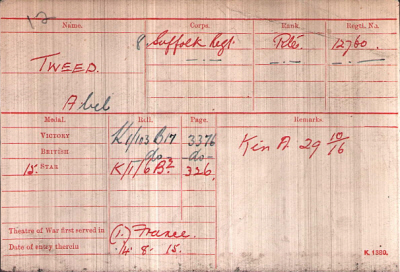 12
Name. Corps. Rank. Regtl. No.
8. Suffolk Regt. Pte. 12760.
TWEED.
Abel
Medal. Roll. Page. Remarks.
VICTORY K1/103 B17 3376
BRITISH do do
15 STAR K/1/6 B2 326.
Kin A 29 10/16
Theatre of War first served in (1.) France.
Date of entry therein 14. 8. 15.
K. 1380.